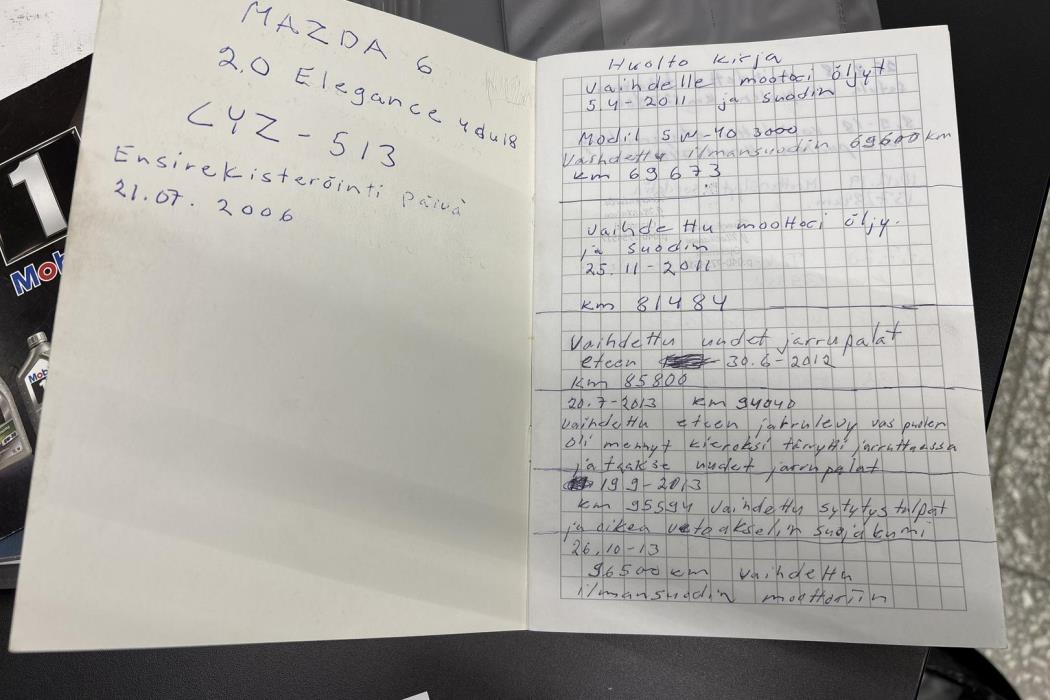 MAZDA 6
2.0 Elegance 4du18
CYZ-513
Ensirekisteröinti päivä
21.07.2006
1
Mob
Mob
Huolto kirja
Vaihdelle mootoci öljyt
5 4-2011 ja suodin
Modil 5 W-40 3000
Vaihdettu ilmansuodin 69600 km
km 69673
vaihdettu moottoci öljy.
ja suodin
25.11-2011
km 81484
Vaihdettu uudet jarrupalat
eteen 30.6-2012
km 85800
20.7-2013 km 94040
vaihdettu eteen jarrulevy vas puolen
oli mennyt kieroksi tärytti jarruttaessa
ja taakse uudet jarrupalat
19 9-2013
km 95594 vaihdettu sytytystulpat
ja oikea vetoakselin suojakumi
26.10-13
96500 km vaihdettu
ilmansuodin moottoriin